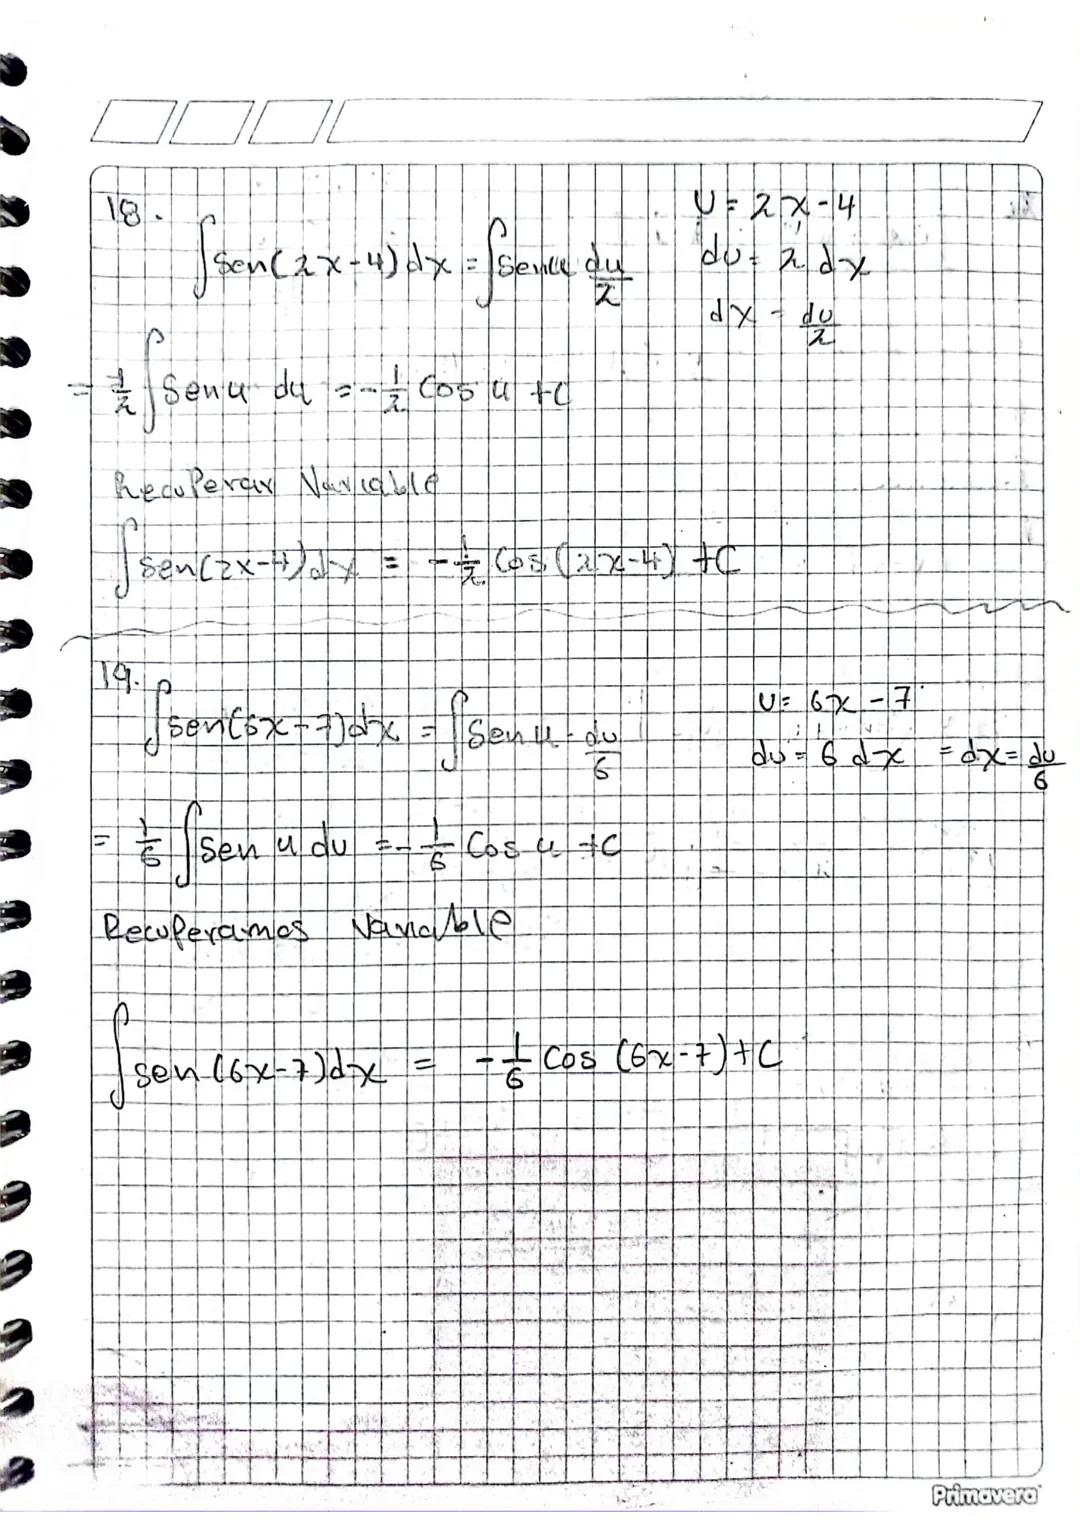 18. U = 2x-4
∫sen(2x-4)dx = ∫senu du/2 du = 2 dx
dx = du/2
= 1/2 ∫Senu du = -1/2 Cos u + C
Recuperar Variable
∫sen(2x-4)dx = -1/2 Cos(2x-4) + C
19.
∫sen(6x-7)dx = ∫Sen u · du/6 U = 6x-7
du = 6 dx = dx = du/6
= 1/6 ∫Sen u du = -1/6 Cos u + C
Recuperamos Variable
∫sen(6x-7)dx = -1/6 Cos (6x-7)+C
Primavera